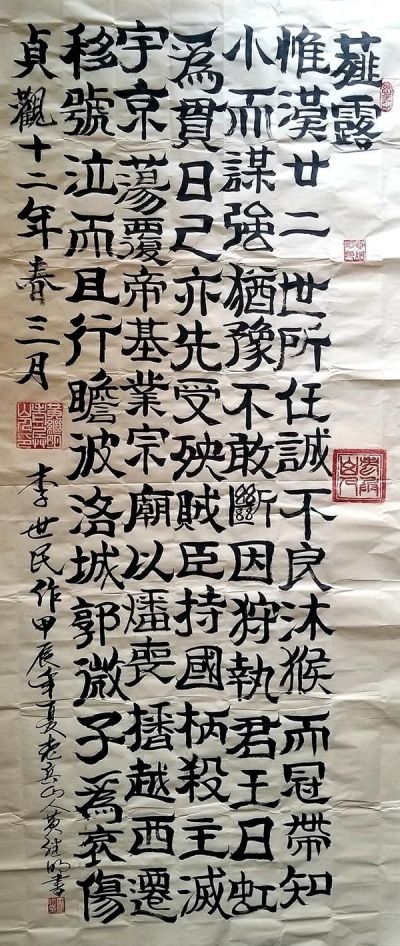 薤露
惟漢廿二世所任誠不良沐猴而冠帶知
小而謀強猶豫不敢斷因狩執君王日虹
爲貫日己亦先受殃賊臣持國柄殺主滅
宇京蕩覆帝基業宗廟以燔喪播越西遷
移號泣而且行瞻彼洛城郭微子爲哀傷
貞觀十二年春三月
李世民作甲辰年夏老岳山人黄继明書